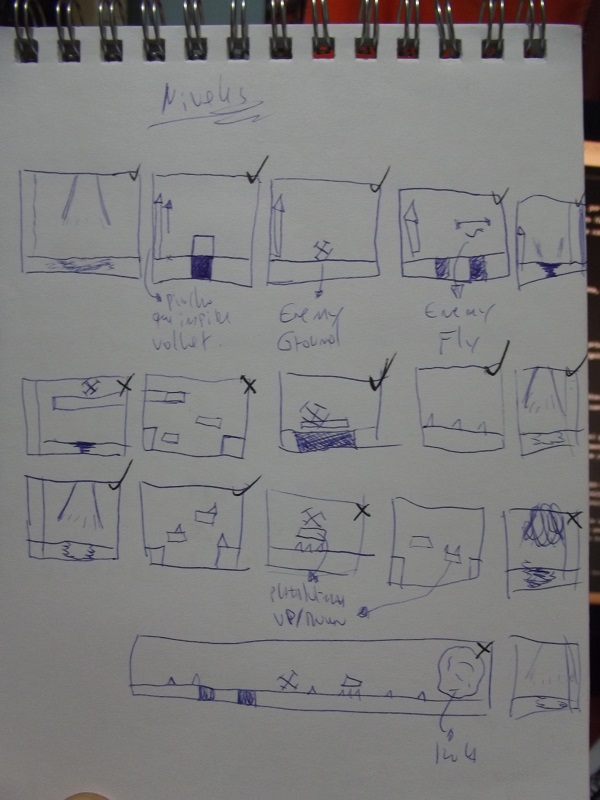 Niveles
pincho
que impide
volver.
Enemy
Ground
Enemy
Fly
plataformas
UP/Down
Ink